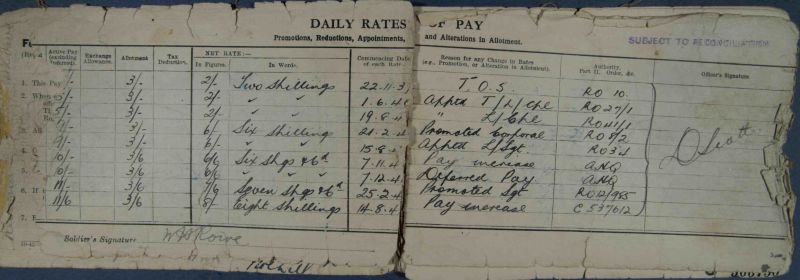 DAILY RATES OF PAY
Promotions, Reductions, Appointments, and Alterations in Allotment.
SUBJECT TO RECONCILIATION
Active Pay (excluding Deferred). Exchange Allowance. Allotment Tax Deduction. NET RATE:— In Figures. In Words. Commencing Date of each Rate. Reason for any Change in Rates (e.g., Promotion, or Alteration in Allotment). Authority, Part II. Order, &c. Officer's Signature
1. This Pay 3/- 2/- Two Shillings T.O.S. RO 10
2. When 3/- 2/- " " 1.6.4 Appted T/L/Cpl RO 27/1
5/- 3/- 2/- " " 19.8.4 " L/Cpl RO 41/1
3. All 3/- 6/- Six Shillings 21.2.4 Promoted Corporal RO 8/2
3/- 6/- " " 15.8.4 Appted L/Sgt. RO 34
3/6 6/6 Six Shgs & 6d 7.11.4 Pay increase AHQ
3/6 6/6 " " " 7.12.4 Deferred Pay AHQ
6. If 11/- 3/6 7/6 Seven Shgs & 6d 25.2.4 Promoted Sgt RO 12/985
11/6 3/6 8/- Eight Shillings 14.8.4 Pay increase C 537012
D Scott
7.
Soldier's Signature